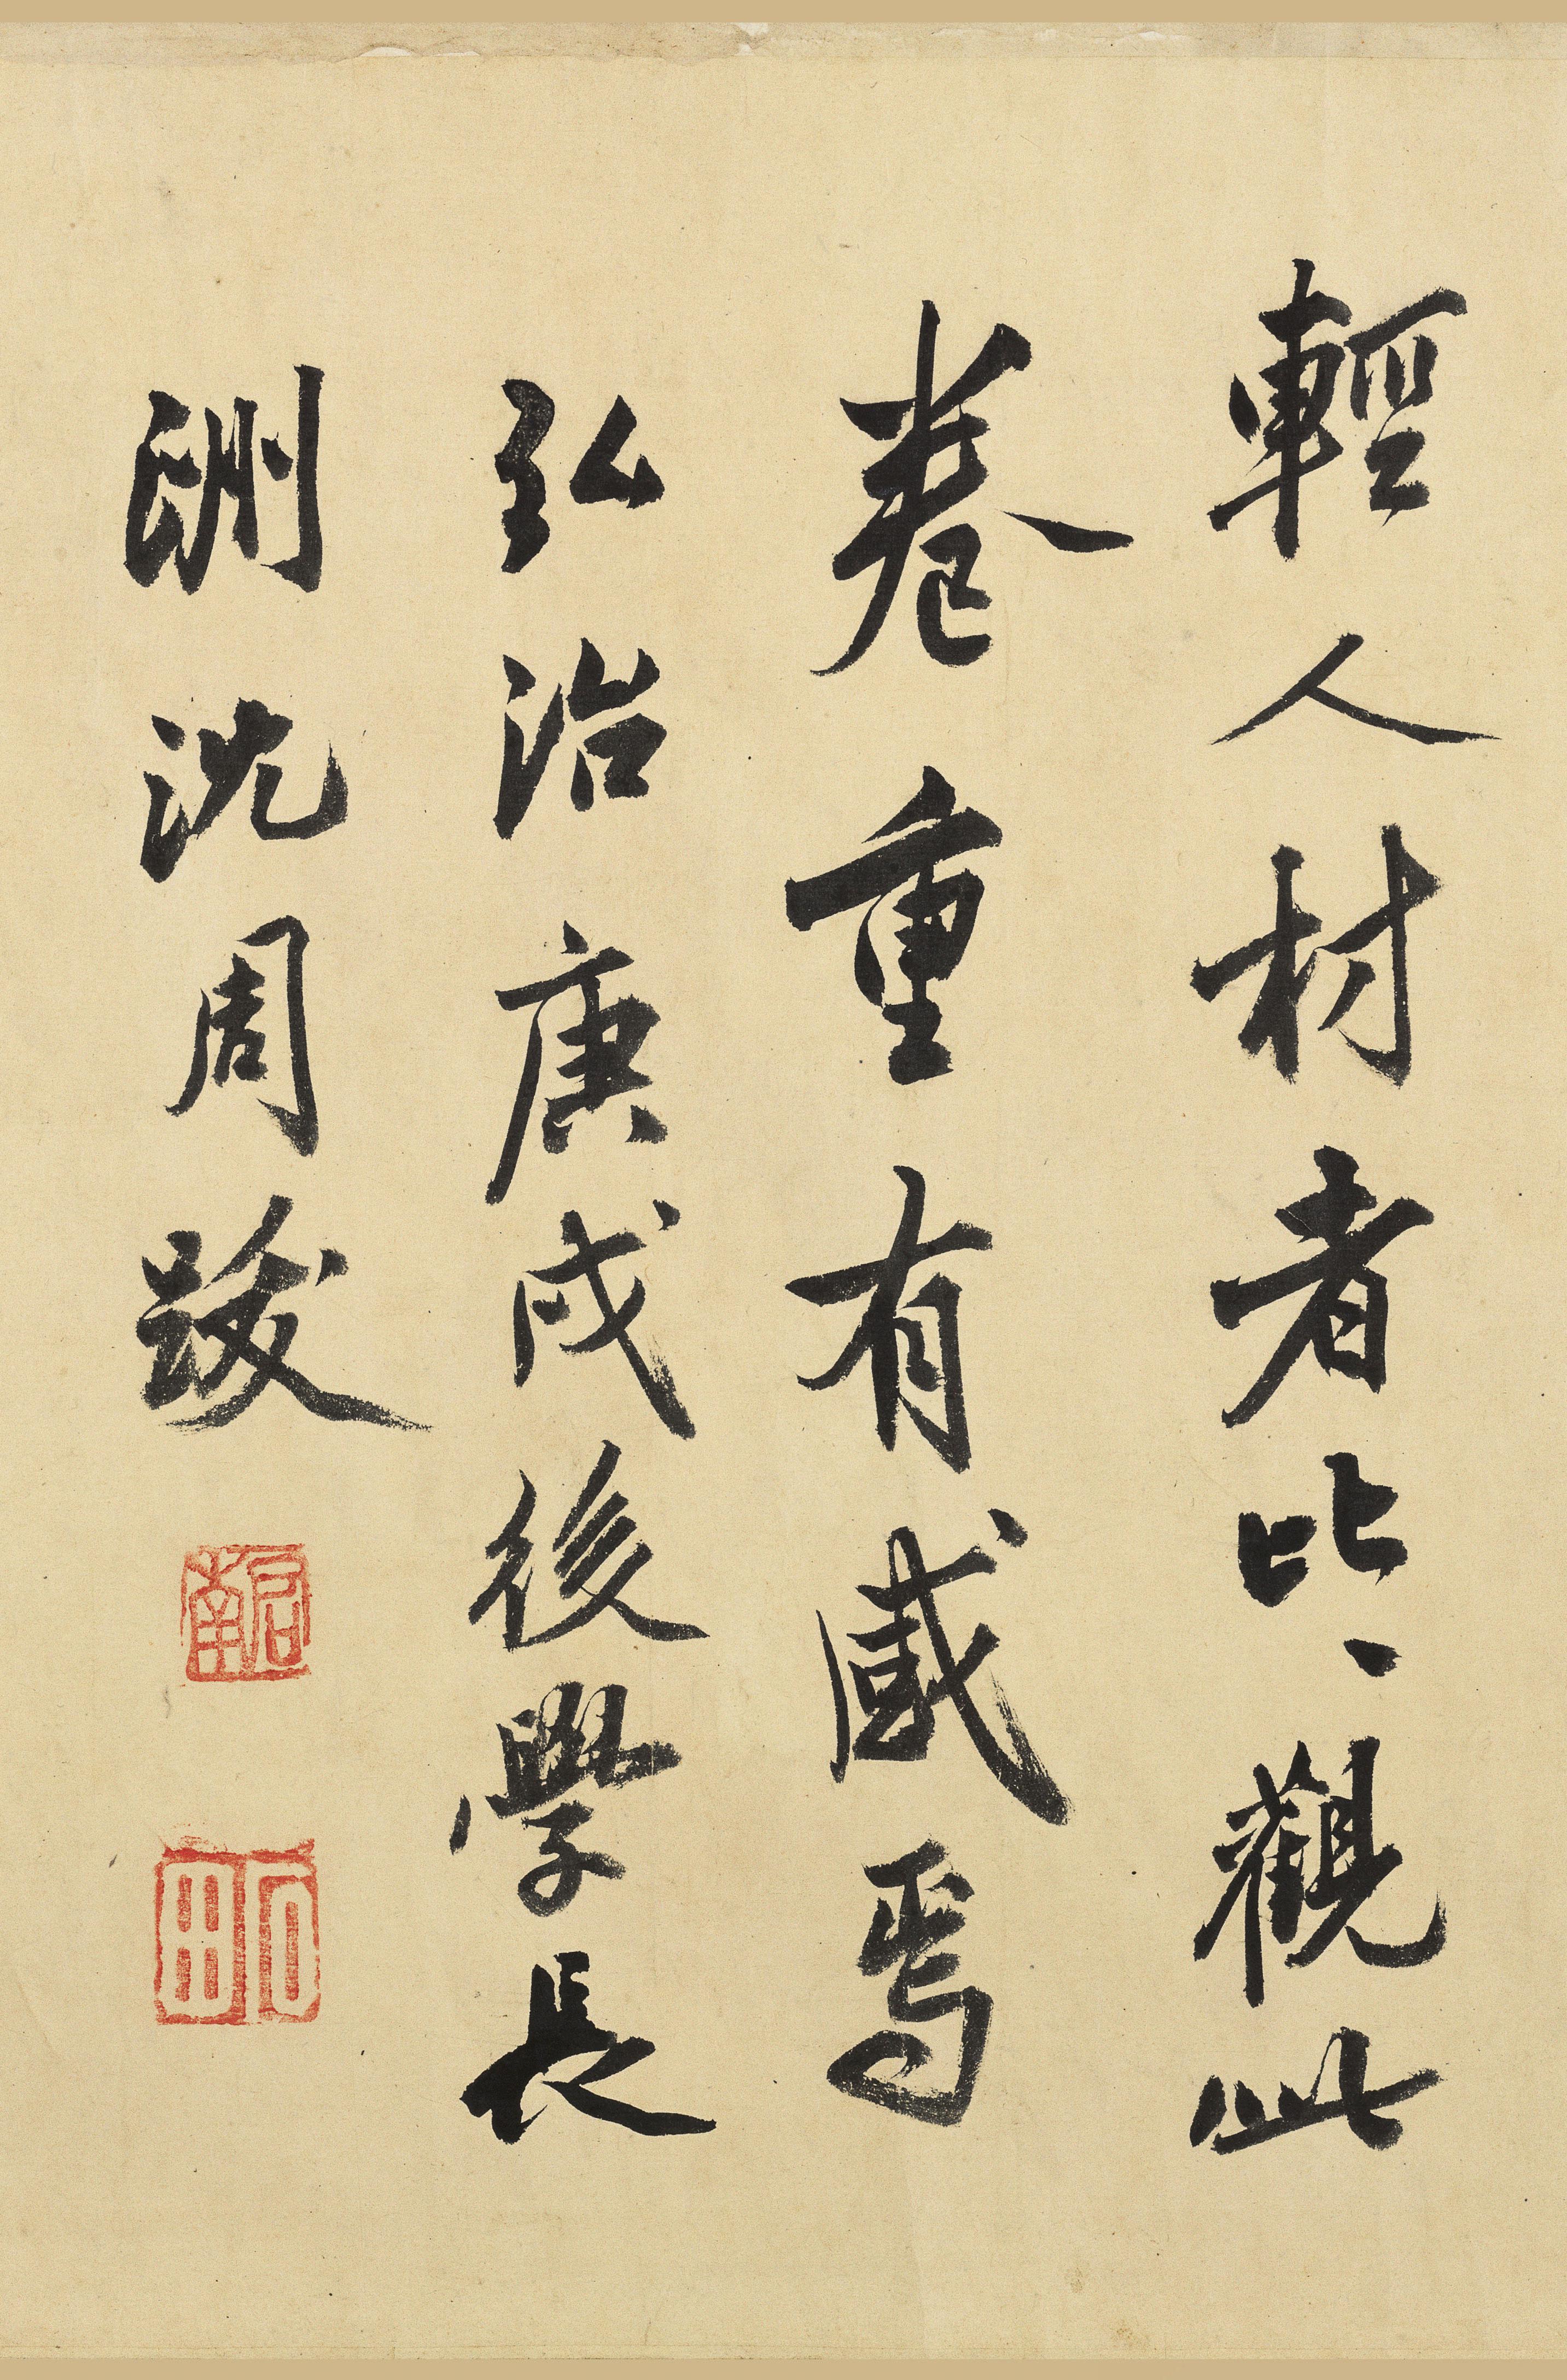 輕人材者比比觀此
卷重有感焉
弘治庚戌後學長
洲沈周跋
啟南
石田